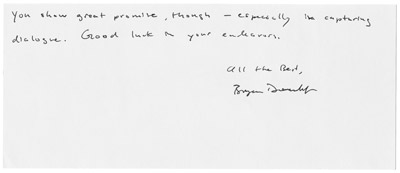 You show great promise, though – especially in capturing
dialogue. Good luck in your endeavors.
All the Best,
Bryan